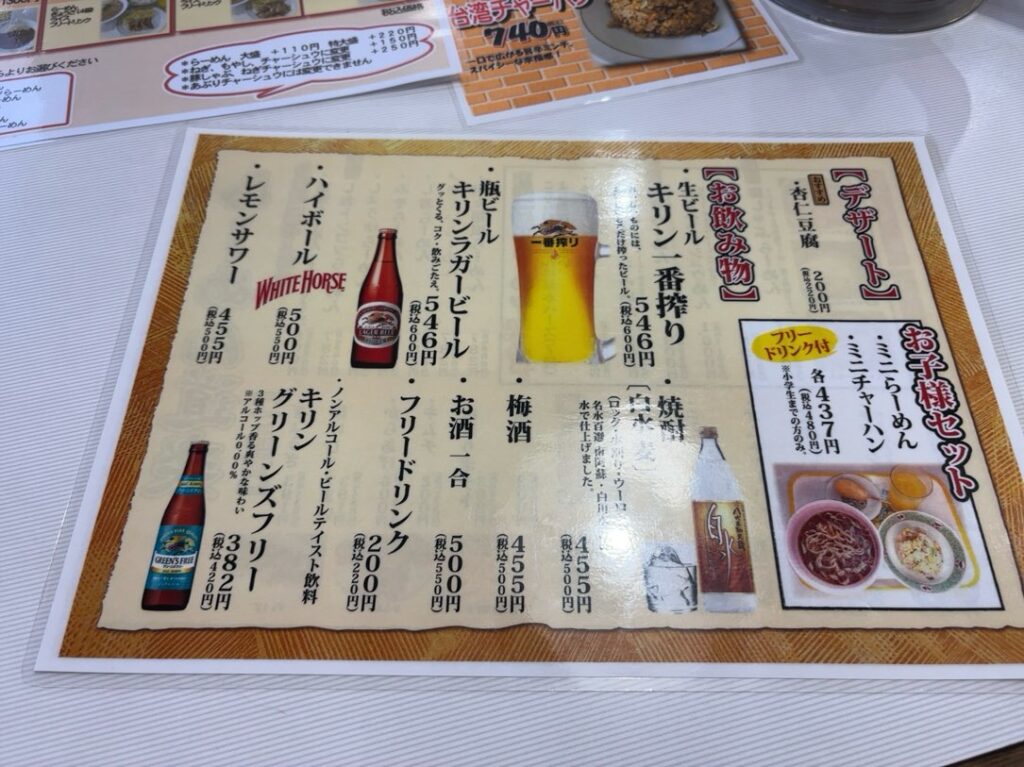 らーめん 大盛 +110円 特大盛 +220円
*ねぎ、もやし、チャーシュウに変更 +160円
*豚しゃぶ、ねぎチャーシュウに変更 +250円
*あぶりチャーシュウには変更できません
よりお選びください
台湾チャーハン
740円
一口で広がる旨辛ミンチ。
【デザート】
おすすめ
・杏仁豆腐
200円
(税込220円)
お子様セット
フリー
ドリンク付
・ミニらーめん
・ミニチャーハン
各437円
(税込480円)
※小学生までの方のみ。
【お飲み物】
・生ビール
キリン一番搾り
546円
(税込600円)
一番搾り
・瓶ビール
キリンラガービール
グッとくる、コク・飲みごたえ。
546円
(税込600円)
・ハイボール
WHITE HORSE
500円
(税込550円)
・レモンサワー
455円
(税込500円)
・焼酎
水で仕上げました。
455円
(税込500円)
白水
・梅酒
455円
(税込500円)
・お酒 一合
500円
(税込550円)
・フリードリンク
200円
(税込220円)
・ノンアルコール・ビールテイスト飲料
キリン
グリーンズフリー
3種ホップ香る爽やかな味わい
※アルコール0.00%
382円
(税込420円)
GREEN'S FREE